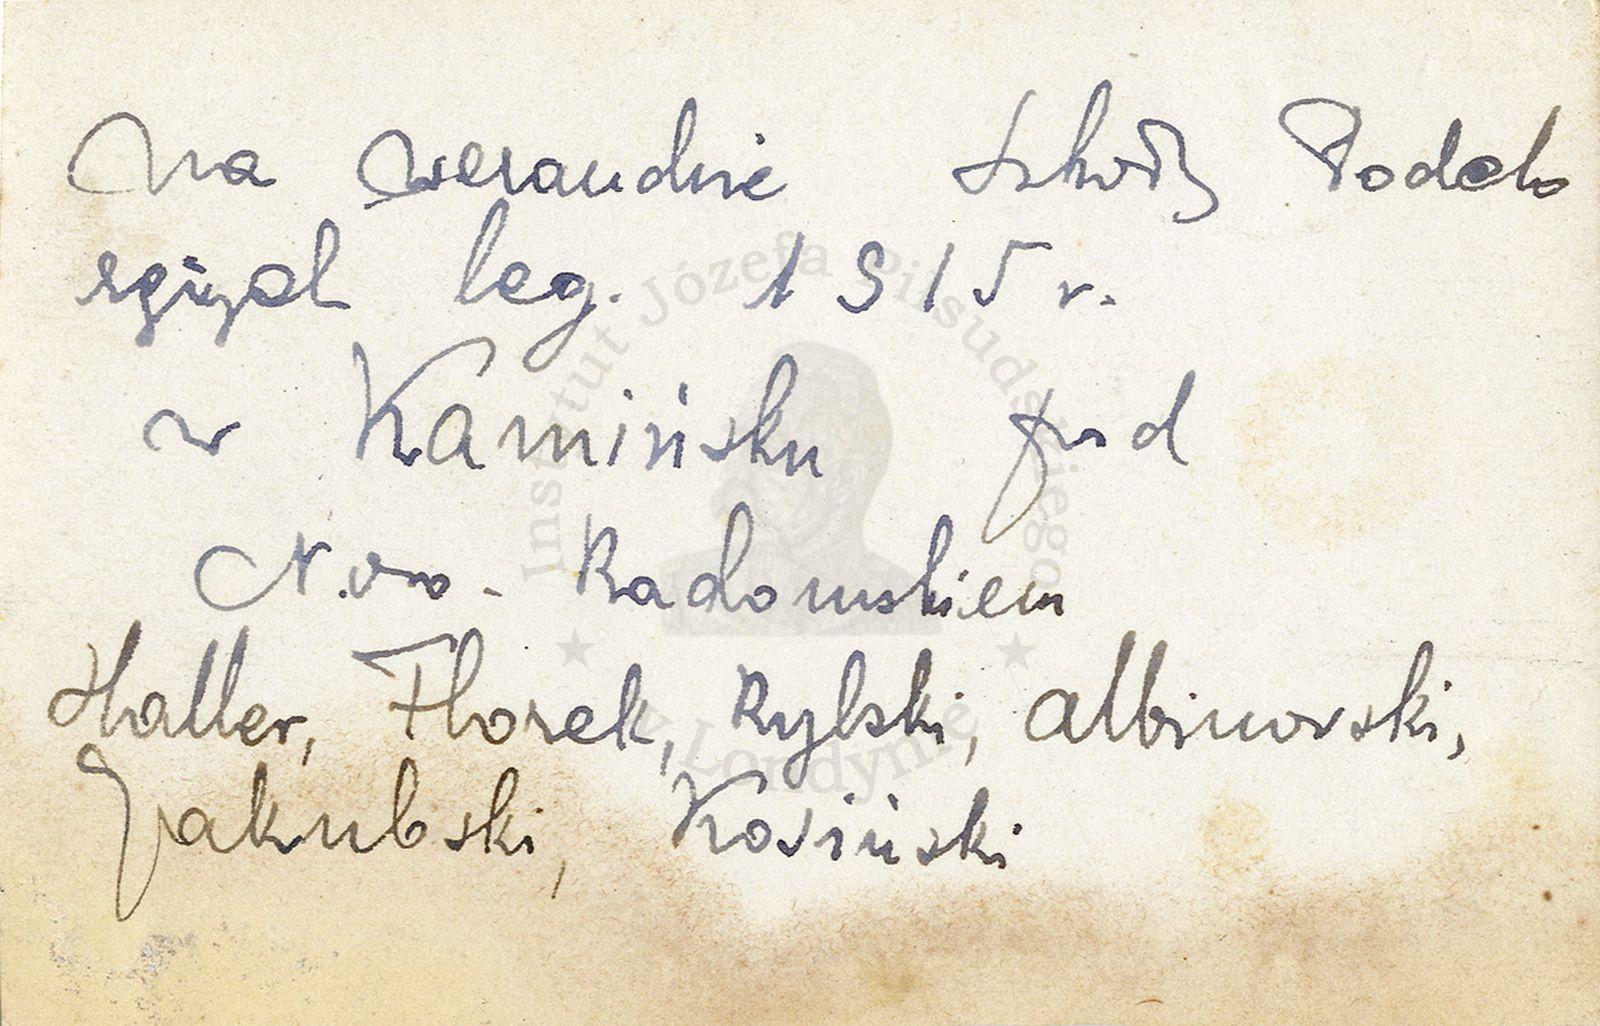 Na werandzie Szkoły Podcho
rążych leg. 1915 r.
w Kamińsku pod
Now. Radomskiem
Haller, Florek, Rylski, Albinowski,
Jakubski, Kosiński
Instytut Józefa Piłsudskiego
w Londynie